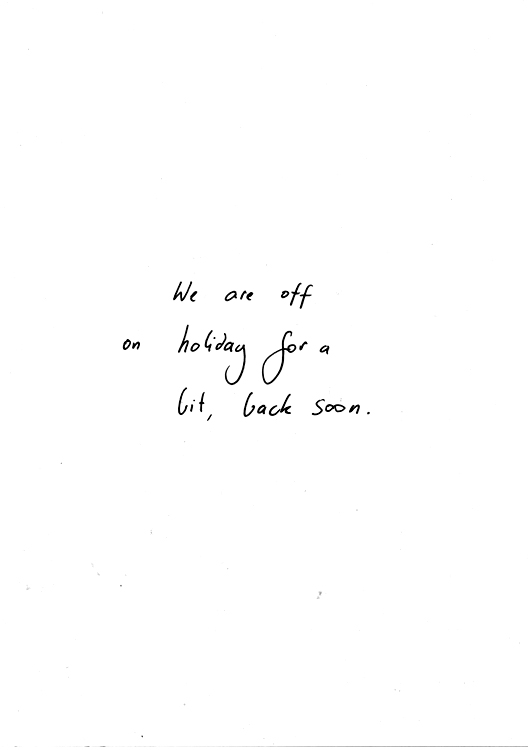 We are off
on holiday for a
bit, back soon.